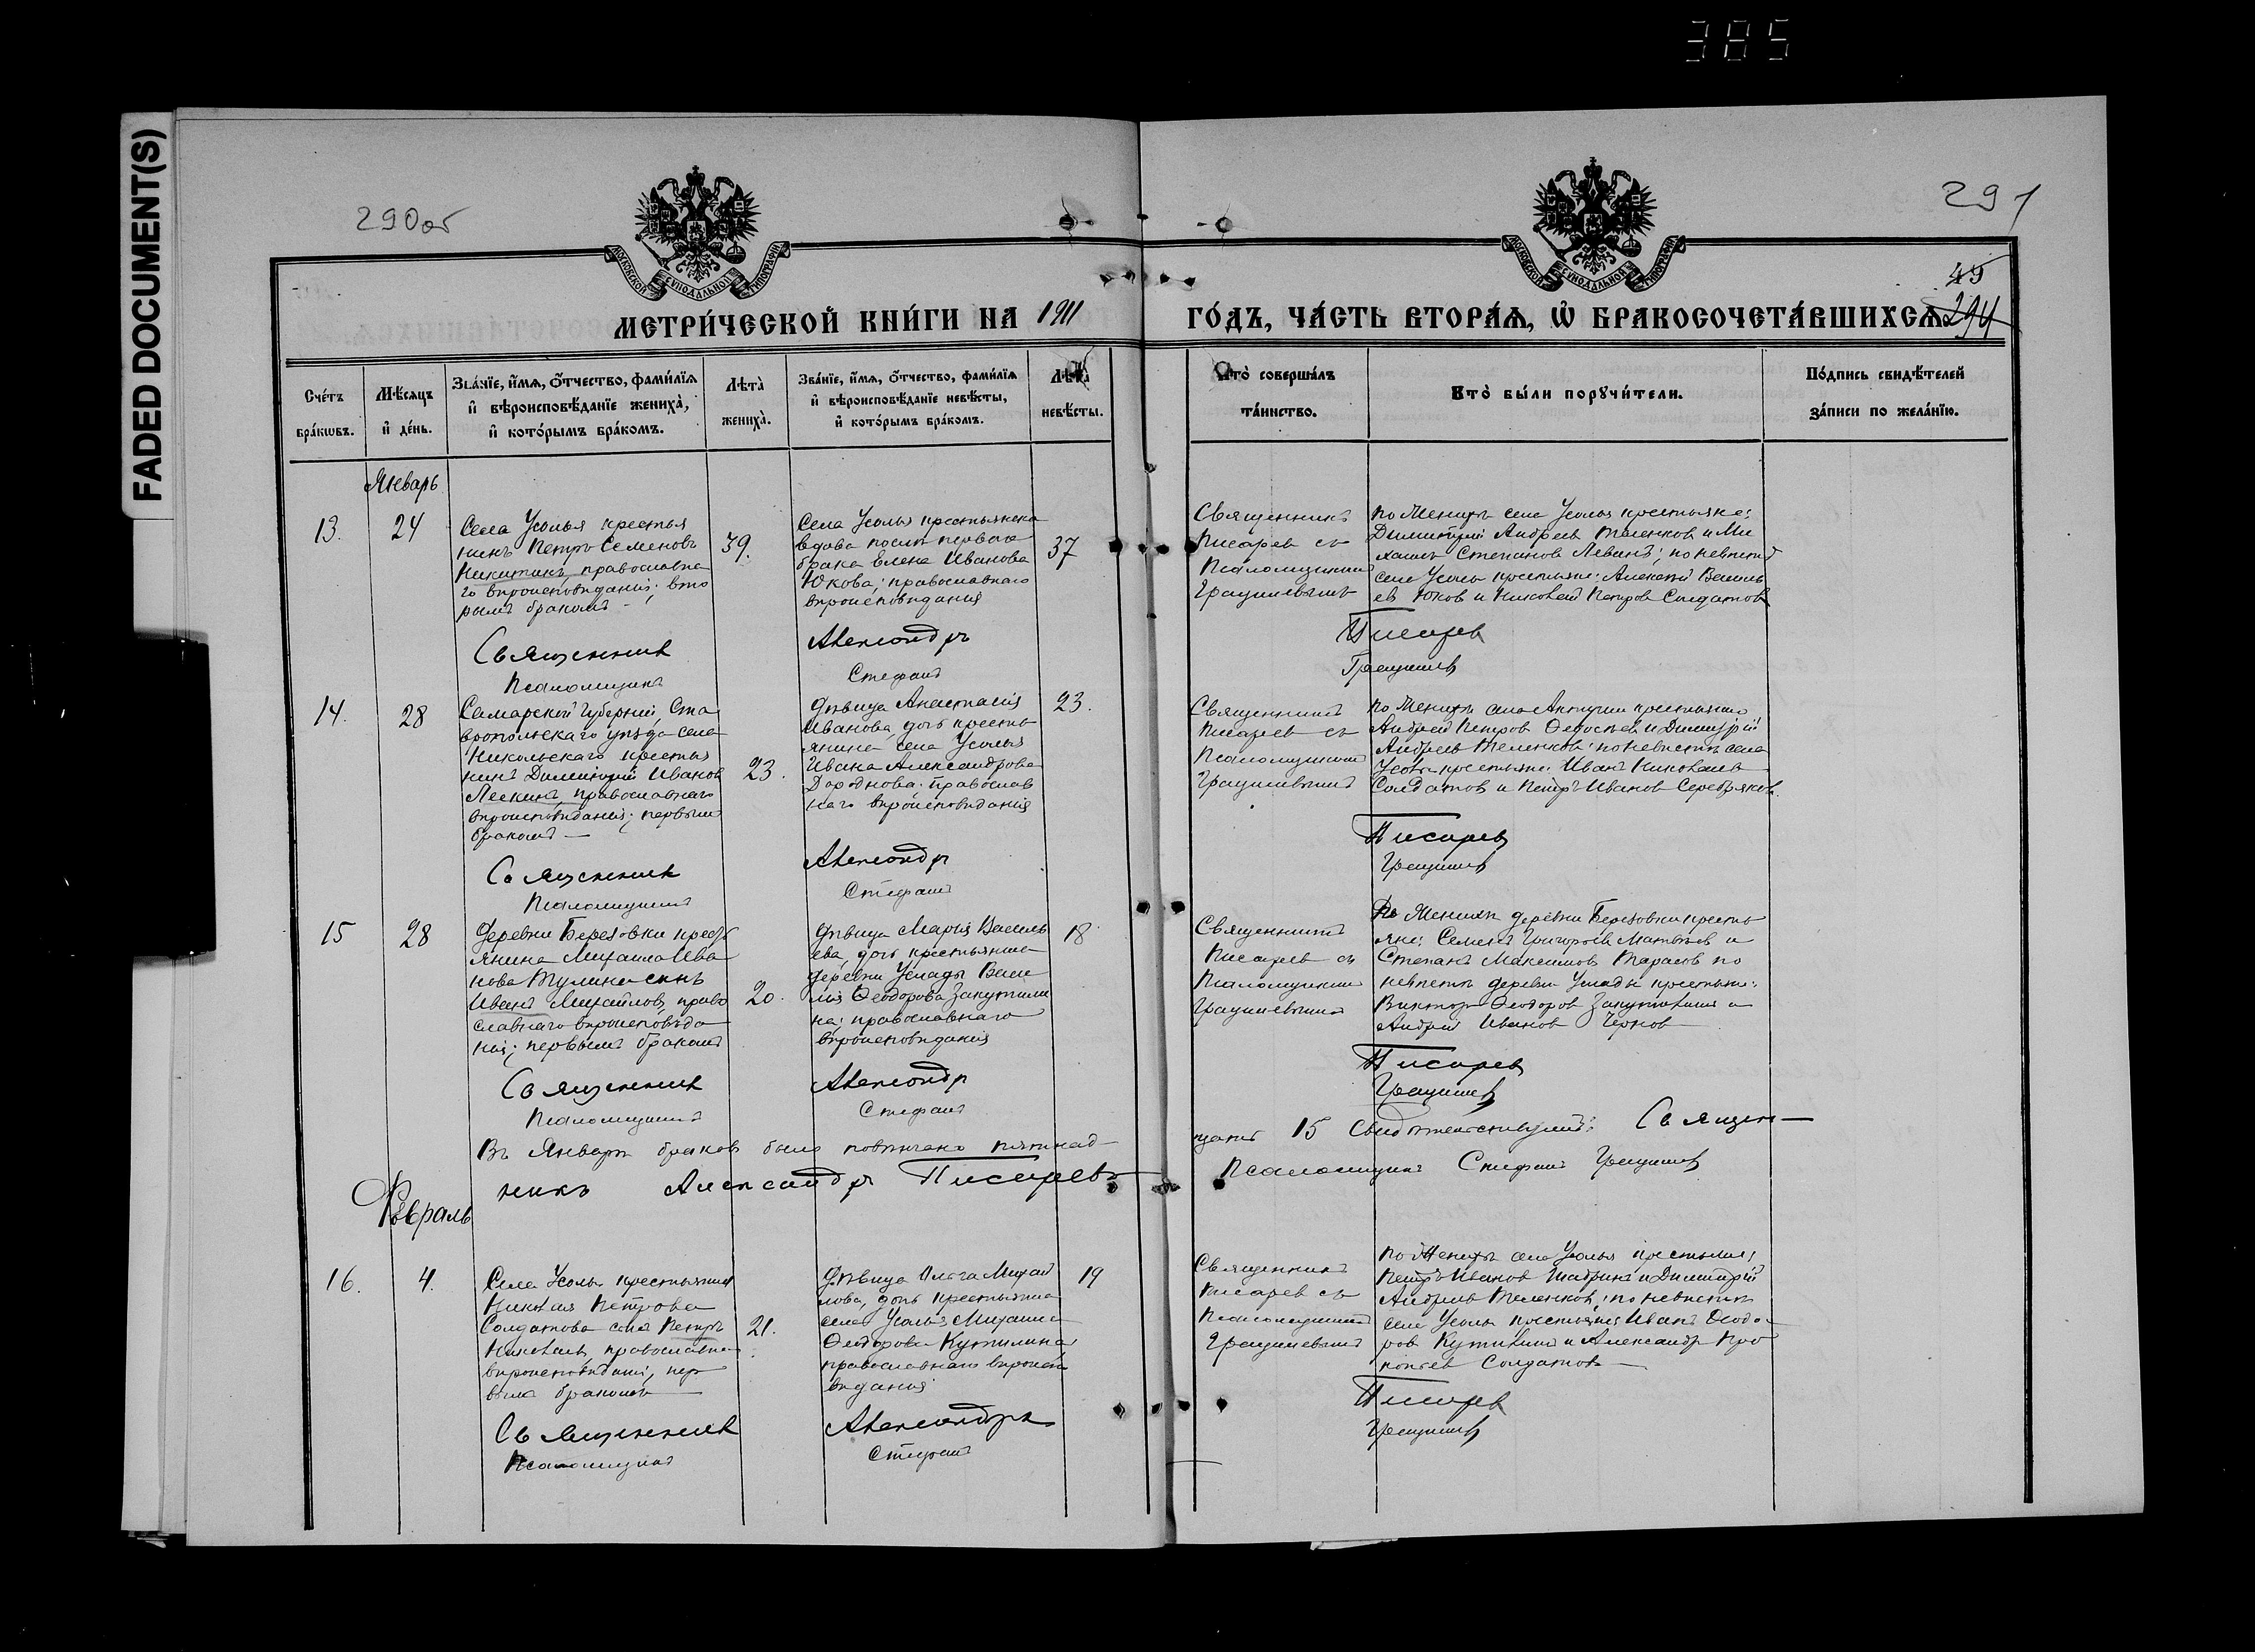 385
FADED DOCUMENT(S)
290об
291
МОСКОВСКОЙ СѴНОДАЛЬНОЙ ТИПОГРАФІИ
МОСКОВСКОЙ СѴНОДАЛЬНОЙ ТИПОГРАФІИ
45
294
МЕТРИ́ЧЕСКОЙ КНИ́ГИ НА 1911 ГО́ДЪ, ЧА́СТЬ ВТОРА́Я, Ѡ҆ БРАКОСОЧЕТА́ВШИХСѦ.
Сче́тъ
бра́кѡвъ.
Мѣ́сяцъ
и҆ де́нь.
Зва́нїе, и҆́мѧ, ѻ҆́тчество, фами́лїѧ
и҆ вѣроисповѣ́данїе жениха̀,
и҆ кото́рымъ бра́комъ.
Лѣта̀
жениха̀.
Зва́нїе, и҆́мѧ, ѻ҆́тчество, фами́лїѧ
и҆ вѣроисповѣ́данїе невѣ́сты,
и҆ кото́рымъ бра́комъ.
Лѣта̀
невѣ́сты.
Кто̀ соверша́лъ
та́инство.
Кто̀ бы́ли порꙋчи́тели.
По́дпись свидѣ́телей
за́писи по жела́нїю.
Январь
13.
24
Села Усолья крестья
нинъ Петръ Семеновъ
Никитинъ, православна
го вѣроисповѣданія; вто
рымъ бракомъ
39.
Села Усолья крестьянска
вдова послѣ перваго
брака Елена Иванова
Юкова; православнаго
вѣроисповѣданія
37
Священникъ
Писаревъ съ
Псаломщикомъ
Грацилевымъ
По Женихѣ села Усолья крестьяне:
Димитрій Андреевъ Теленков и Ми
хаилъ Степановъ Левинъ; по невѣстѣ
села Усолья крестьяне: Алексѣй Василь
ев Юков и Николай Петров Солдатов
Священник Александръ Писарев
Псаломщикъ Стефанъ
14.
28
Самарской губерніи, Ста
вропольскаго уѣзда села
Никольскаго крестья
нинъ Димитрій Иванов
Лескинъ, православнаго
вѣроисповѣданія; первымъ
бракомъ
23.
Дѣвица Анастасія
Иванова, дочь кресть
янина села Усолья
Ивана Александрова
Дороднова. православ
наго вѣроисповѣданія
23.
Священникъ
Писаревъ съ
Псаломщикомъ
По Женихѣ села крестьяне
Андрей Петров Федосѣев и Димитрій
Андреевъ Теленков; по невѣстѣ села
Усолья крестьяне: Иванъ Николаевъ
Солдатов и Петръ Иванов Серебряков.
Священник Александръ Писарев
Псаломщикъ Стефанъ
15
28
Деревни Березовки кресть
янина Михаила Ива
нова Тулина сынъ
Иванъ Михайловъ, право
славнаго вѣроисповѣда
нія; первымъ бракомъ
20.
Дѣвица Марія Василь
ева, дочь крестьянина
деревни Услады Васи
лія Феодорова Закутили
на; православнаго
вѣроисповѣданія
18.
Священникъ
Писаревъ съ
Псаломщикомъ
По Женихѣ деревни Березовки кресть
яне: Семенъ Григорьев Матвѣев и
Степанъ Максимов Тарасов по
невѣстѣ деревни Услады крестьяне:
Викторъ Феодоров Закутилинъ и
Андрей Иванов Чернов
Священник Александръ Писарев
Псаломщикъ Стефанъ
Въ Январѣ браков было повѣнчано пятнад-
цать 15 Свидѣтельствуютъ: Священ-
никъ Александръ Писаревъ
Псаломщикъ Стефанъ
Февраль
16.
4.
Села Усолья крестьянина
Николая Петрова
Солдатова сынъ Петръ
Николаевъ, православнаго
вѣроисповѣданія, пер
вымъ бракомъ
21.
Дѣвица Ольга Михай
лова, дочь крестьянина
села Усолья Михаила
Феодорова Кутилина;
православнаго вѣроиспо
вѣданія
19
Священникъ
Писаревъ съ
Псаломщикомъ
По Женихѣ села Усолья крестьяне:
Петръ Иванов Шабринъ и Димитрій
Андреевъ Теленков; по невѣстѣ
села Усолья крестьяне: Иванъ Феодо-
ров Кутилинъ и Александръ Про
копьев Солдатов
Священник Александръ Писарев
Псаломщикъ Стефанъ